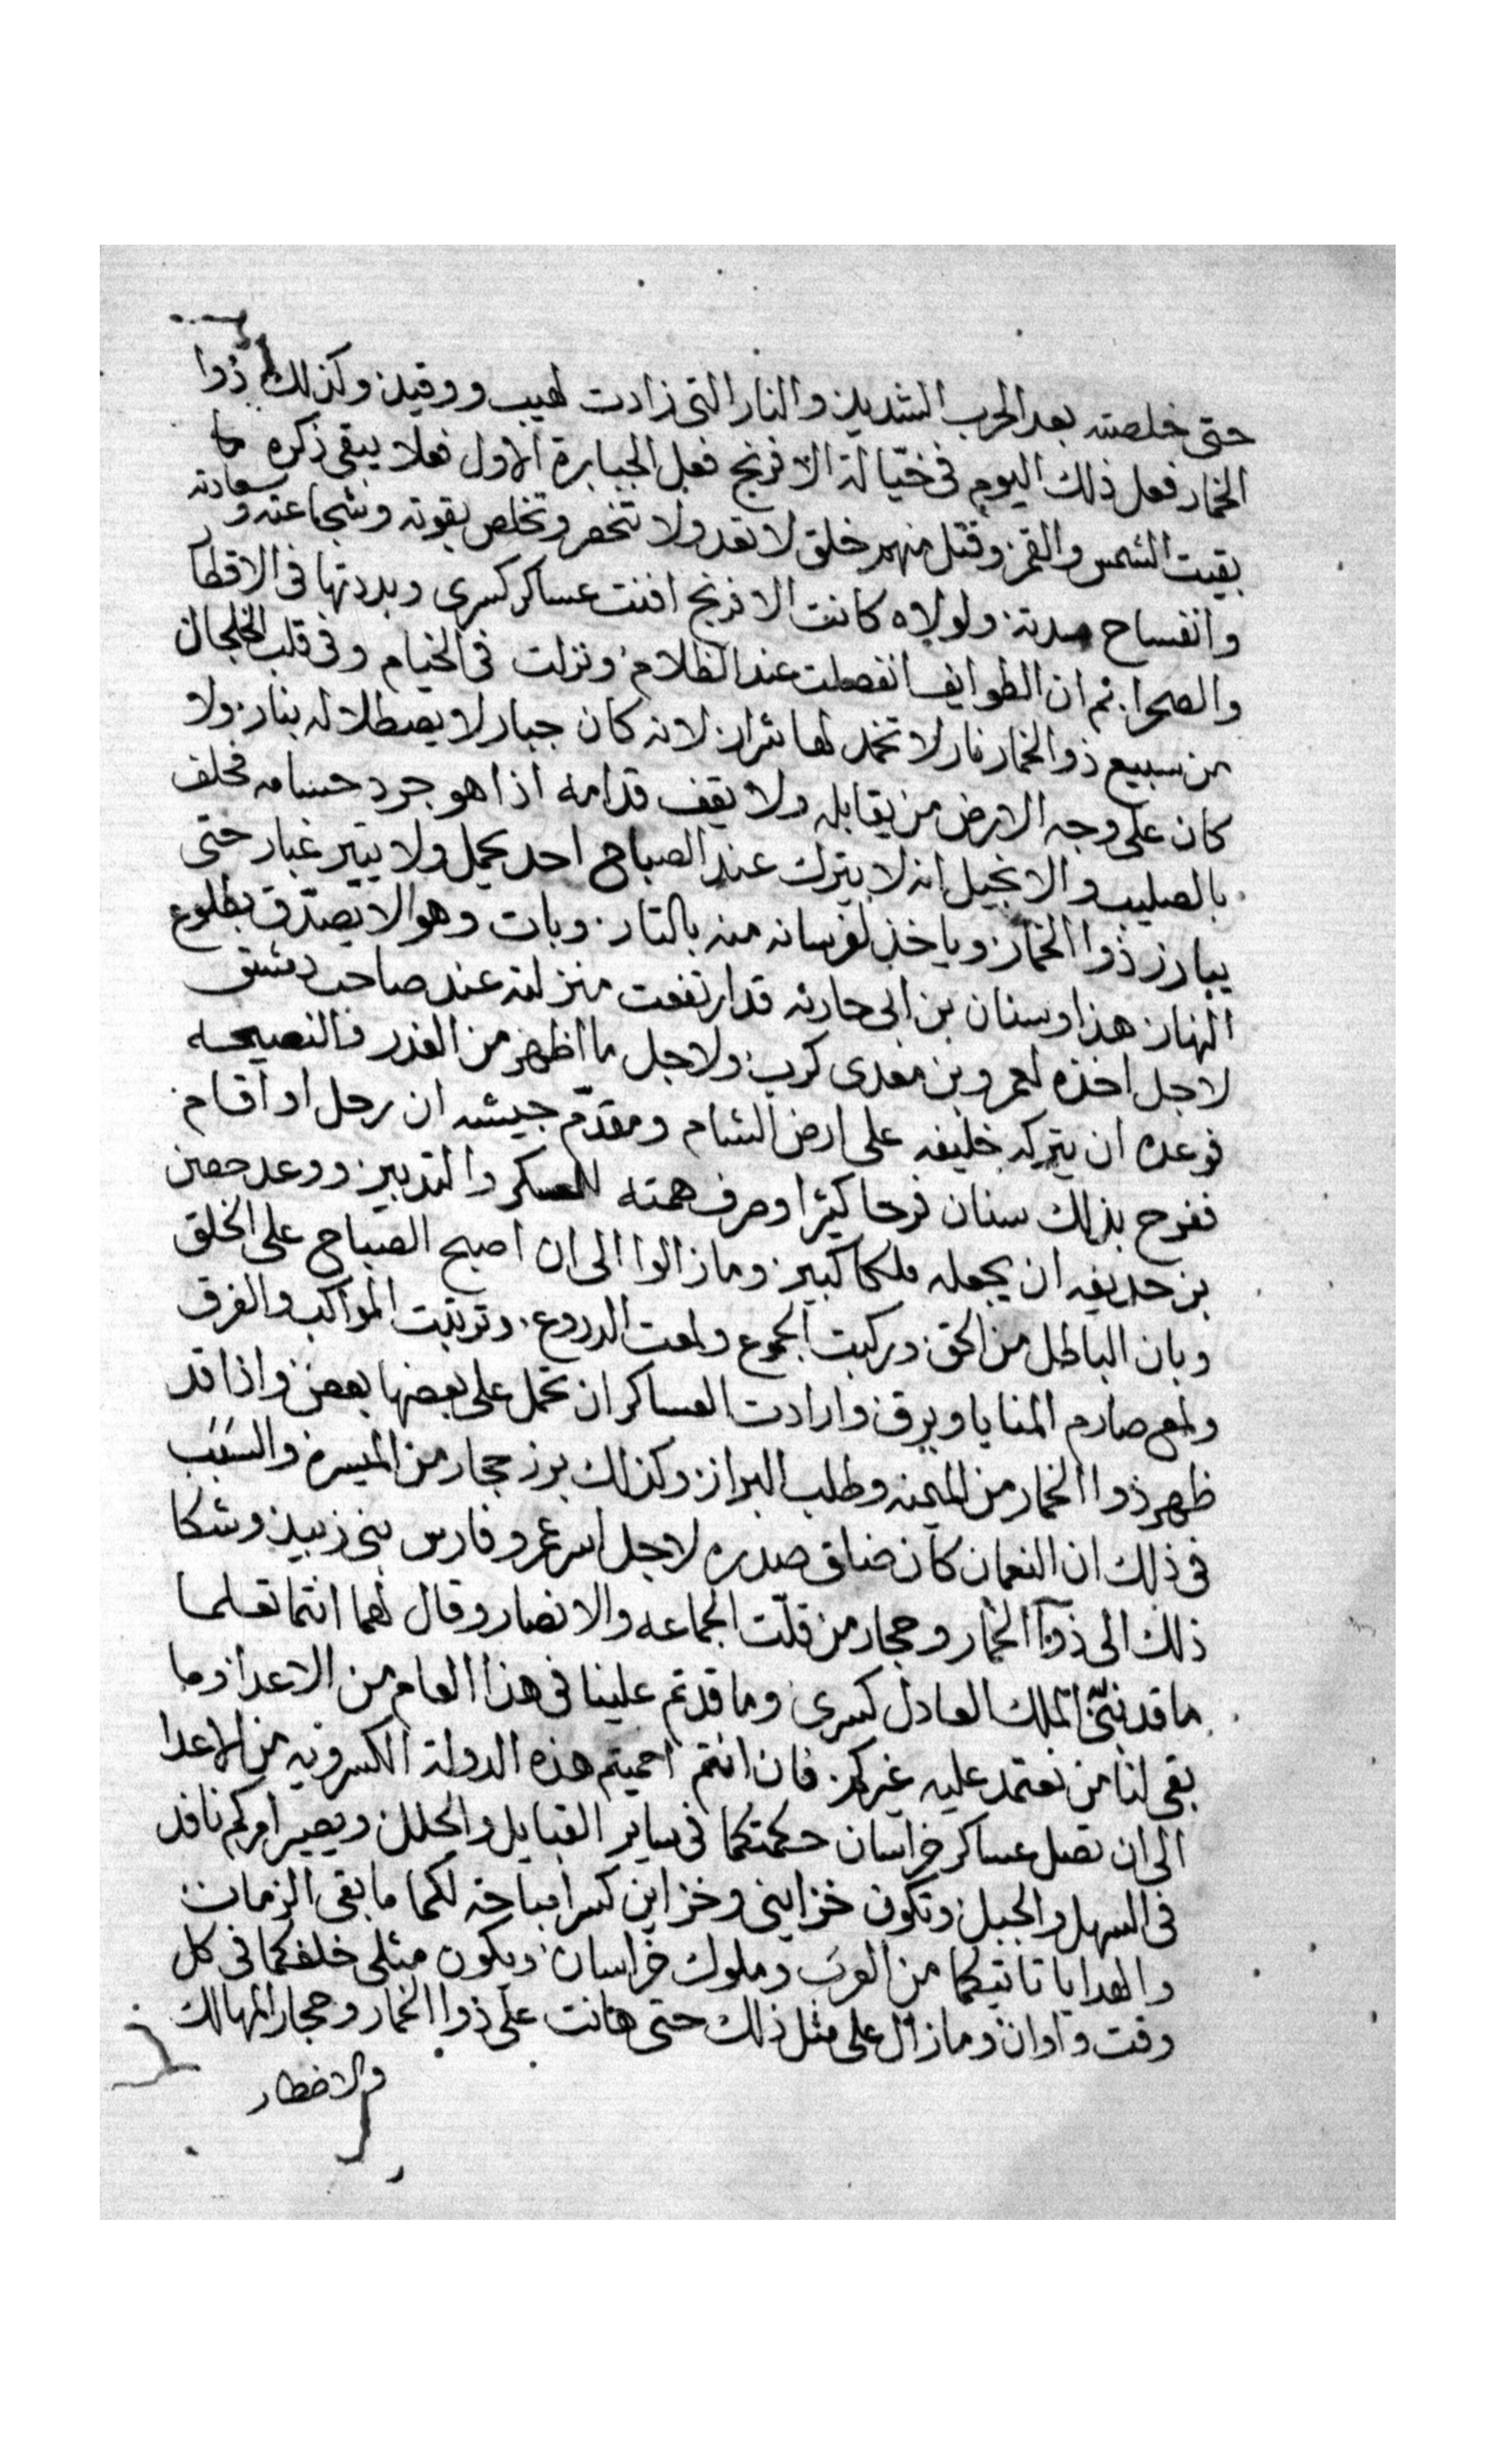 حتى خلصته بعد الحرب الشديد والنار التى زادت لهيب ووقيد وكذلك ذوا
الخمار فعل ذلك اليوم فى خيّالة الافرنج فعل الجبابرة الاول فعلا يبقى ذكره ما
بقيت الشمس والقمر وقتل منهم خلق لا تعد ولا تنحصر وتخلص بقوته وشجاعته وسعادته
وانفساح مدته ولولاه كانت الافرنج افنت عساكر كسرى وبددتها فى الاقطا
والصحرا ثم ان الطوايف انفصلت عند الظلام ونزلت فى الخيام وفى قلب الخلجان
من سبيع ذو الخمار نار لا تخمد لها شرار لانه كان جبار لا يصطلا له بنار ولا
كان على وجه الارض من يقابله ولا يقف قدامه اذا هو جرد حسامه فحلف
بالصليب والانجيل انه لا يترك عند الصباح احد يحمل ولا يتير غبار حتى
يبارز ذوا الخمار وياخذ لفرسانه منه بالتار وبات وهو لا يصدّق بطلوع
النهار هذا وسنان بن ابى حارثه قد ارتفعت منزلته عند صاحب دمشق
لاجل اخذه لعمرو بن معدى كرب ولاجل ما اظهر من الغدر فالنصيحه
فوعده ان يتركه خليفه على ارض الشام ومقدّم جيشه ان رحل او اقام
ففرح بذلك سنان فرحا كثيرا وصرف همته للعسكر والتدبير ووعد حصن
بن حديفه ان يجعله ملكا كبير وما زالوا الى ان اصبح الصباح على الخلق
وبان الباطل من الحق وركبت الجموع ولمعت الدروع وترتبت المواكب والفرق
ولمع صارم المنايا وبرق وارادت العساكر ان تحمل على بعضها بعض واذا قد
ظهر ذوا الخمار من الميمنه وطلب البراز وكذلك برز حجار من الميسره والسَبَب
فى ذلك ان النعمان كان ضاق صدره لاجل اسر عمرو فارس بنى زبيد وشكا
ذلك الى ذوا الخمار وحجار من قلّت الجماعه والانصار وقال لهما انتما تعلما
ما قد نبّى الملك العادل كسرى وما قد تم علينا فى هذا العام من الاعدا وما
بقى لنا من نعتمد عليه غيركم فان انتم احميتم هذه الدولة الكسرويه من الاعدا
الى ان تصل عساكر خراسان حكمتكما فى ساير القبايل والحلل ويصير امركم نافد
فى السهل والجبل وتكون خزاينى وخزاين كسرا مباحه لكما ما بقى الزمان
والهدايا تاتيكما من العرب وملوك خراسان ويكون مثلى خلفكما فى كل
وقت واوان وما زال على مثل ذلك حتى هانت على ذوا الخمار وحجار المهالك
والاخطار